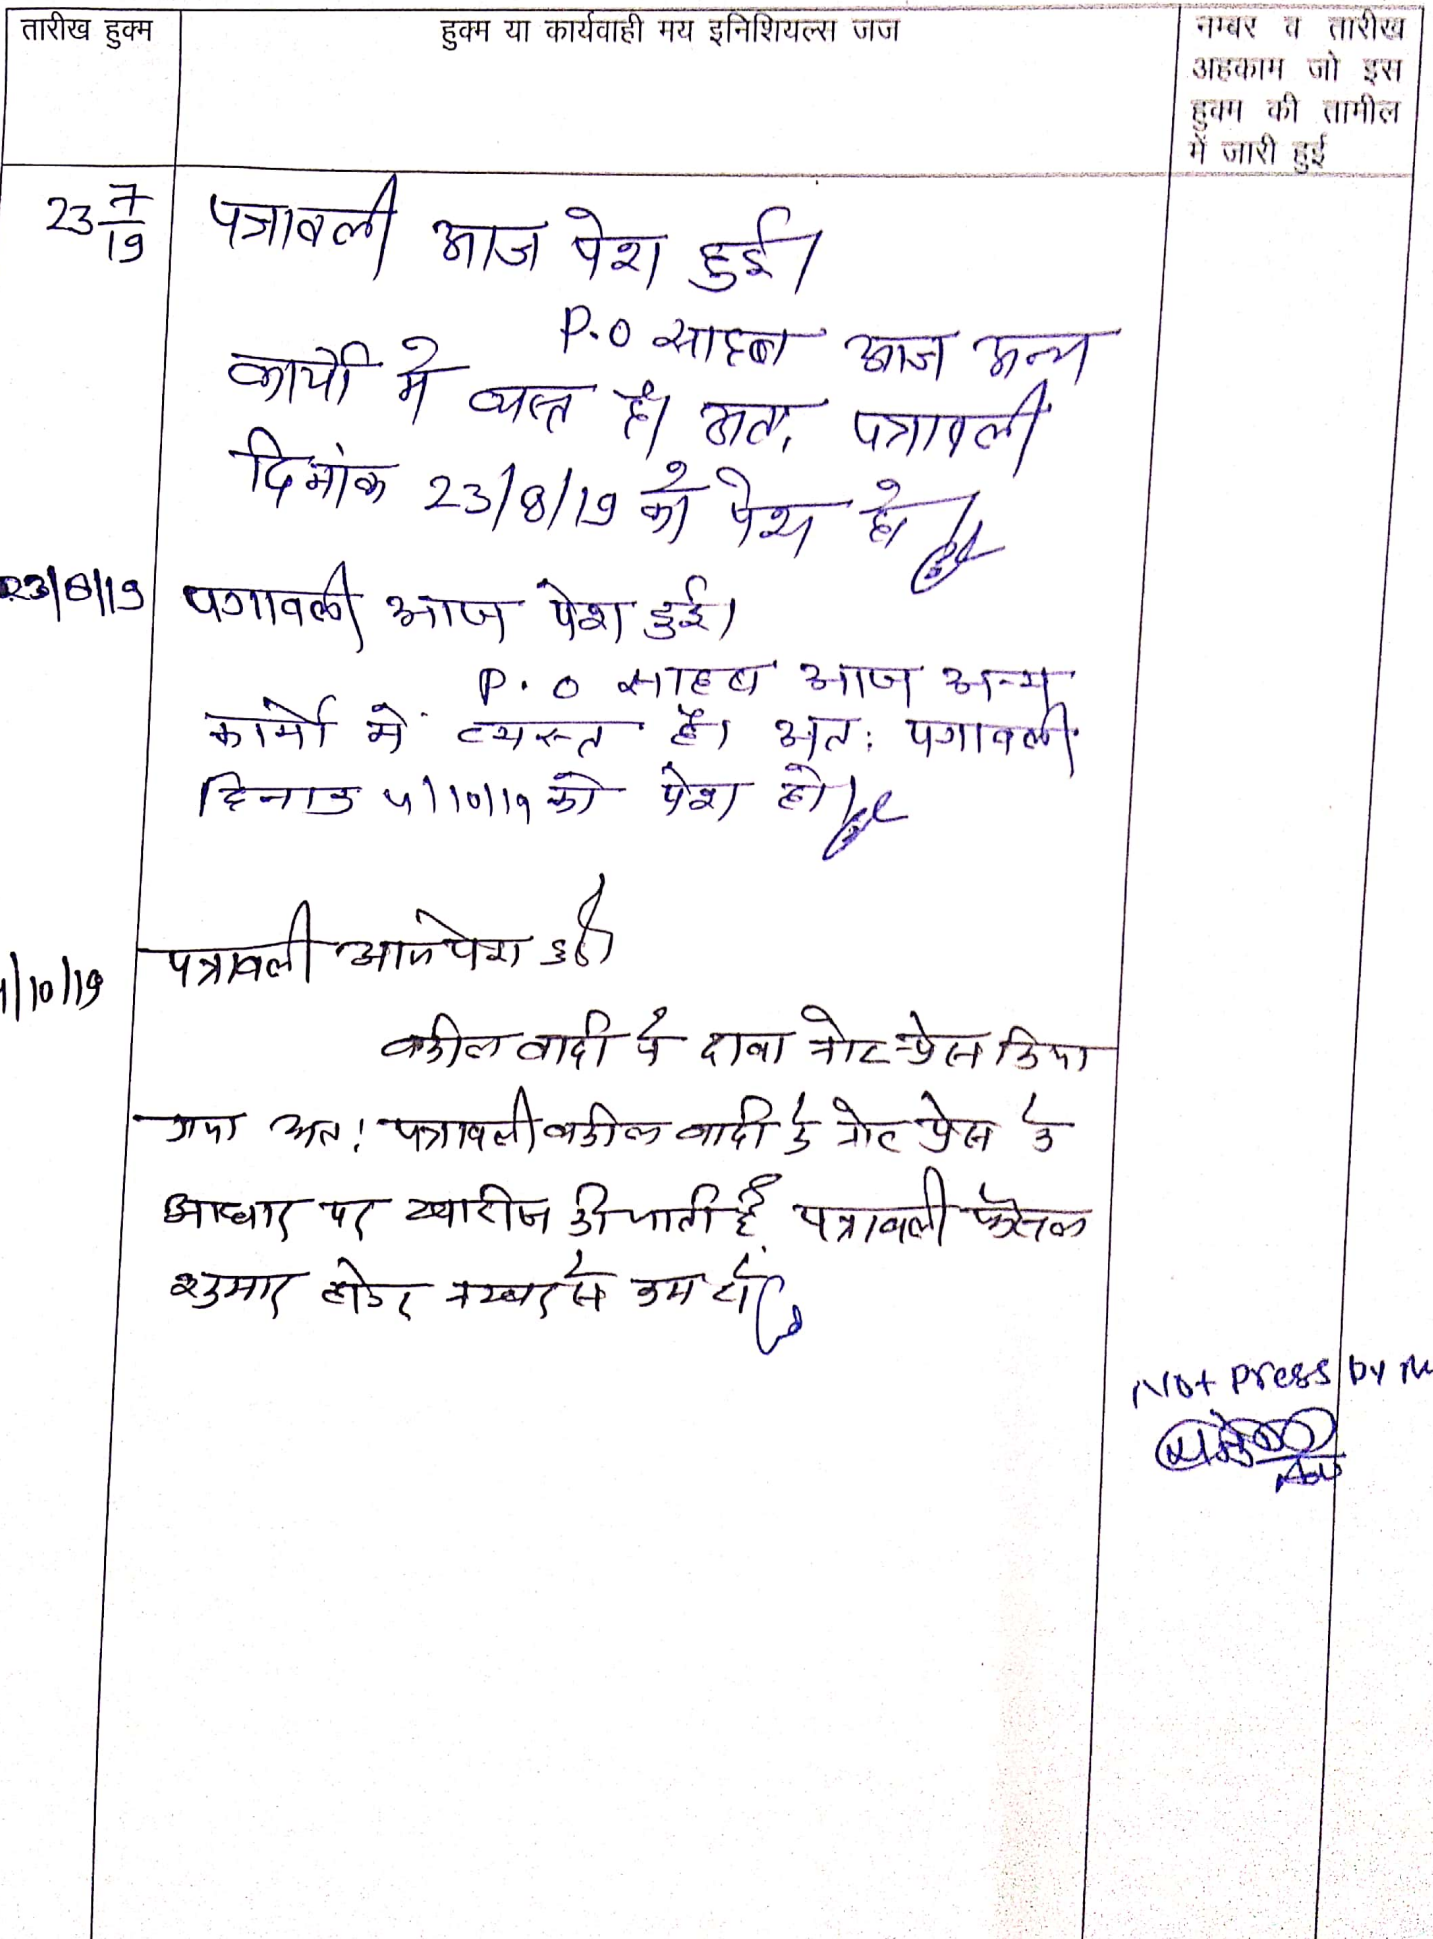 तारीख हुक्म
हुक्म या कार्यवाही मय इनिशियल्स जज
नम्बर व तारीख
अहकाम जो इस
हुक्म की तामील
में जारी हुई
23 7/19
पत्रावली आज पेश हुई।
P.O साहब आज अन्य
कार्यो मे व्यस्त है। अतः पत्रावली
दिनांक 23/8/19 को पेश हो
23/8/19
पत्रावली आज पेश हुई।
P.O साहब आज अन्य
कार्यो में व्यस्त है। अत: पत्रावली
दिनांक 4/10/19 को पेश हो
/10/19
पत्रावली आज पेश हुई
वकील वादी ने दावा नोट प्रेस किया
गया अत: पत्रावली वकील वादी के नोट प्रेस के
आधार पर खारीज की जाती है. पत्रावली फैसल
शुमार होकर नम्बर से कम हो
Not press by
Adv